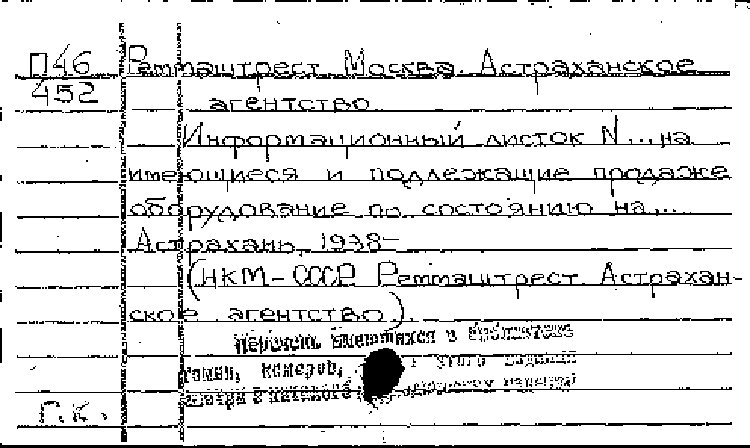 П46 Реммаштрест. Москва. Астраханское
452 агентство.
Информационный листок N... на
имеющиеся и подлежащие продаже
оборудование по состоянию на...
Астрахань, 1938-
(НКМ-СССР. Реммаштрест. Астрахан-
ское агентство).
Перечень имеющихся в библиотеке
томов, номеров, этого издания
смотри в каталоге
Г.К.